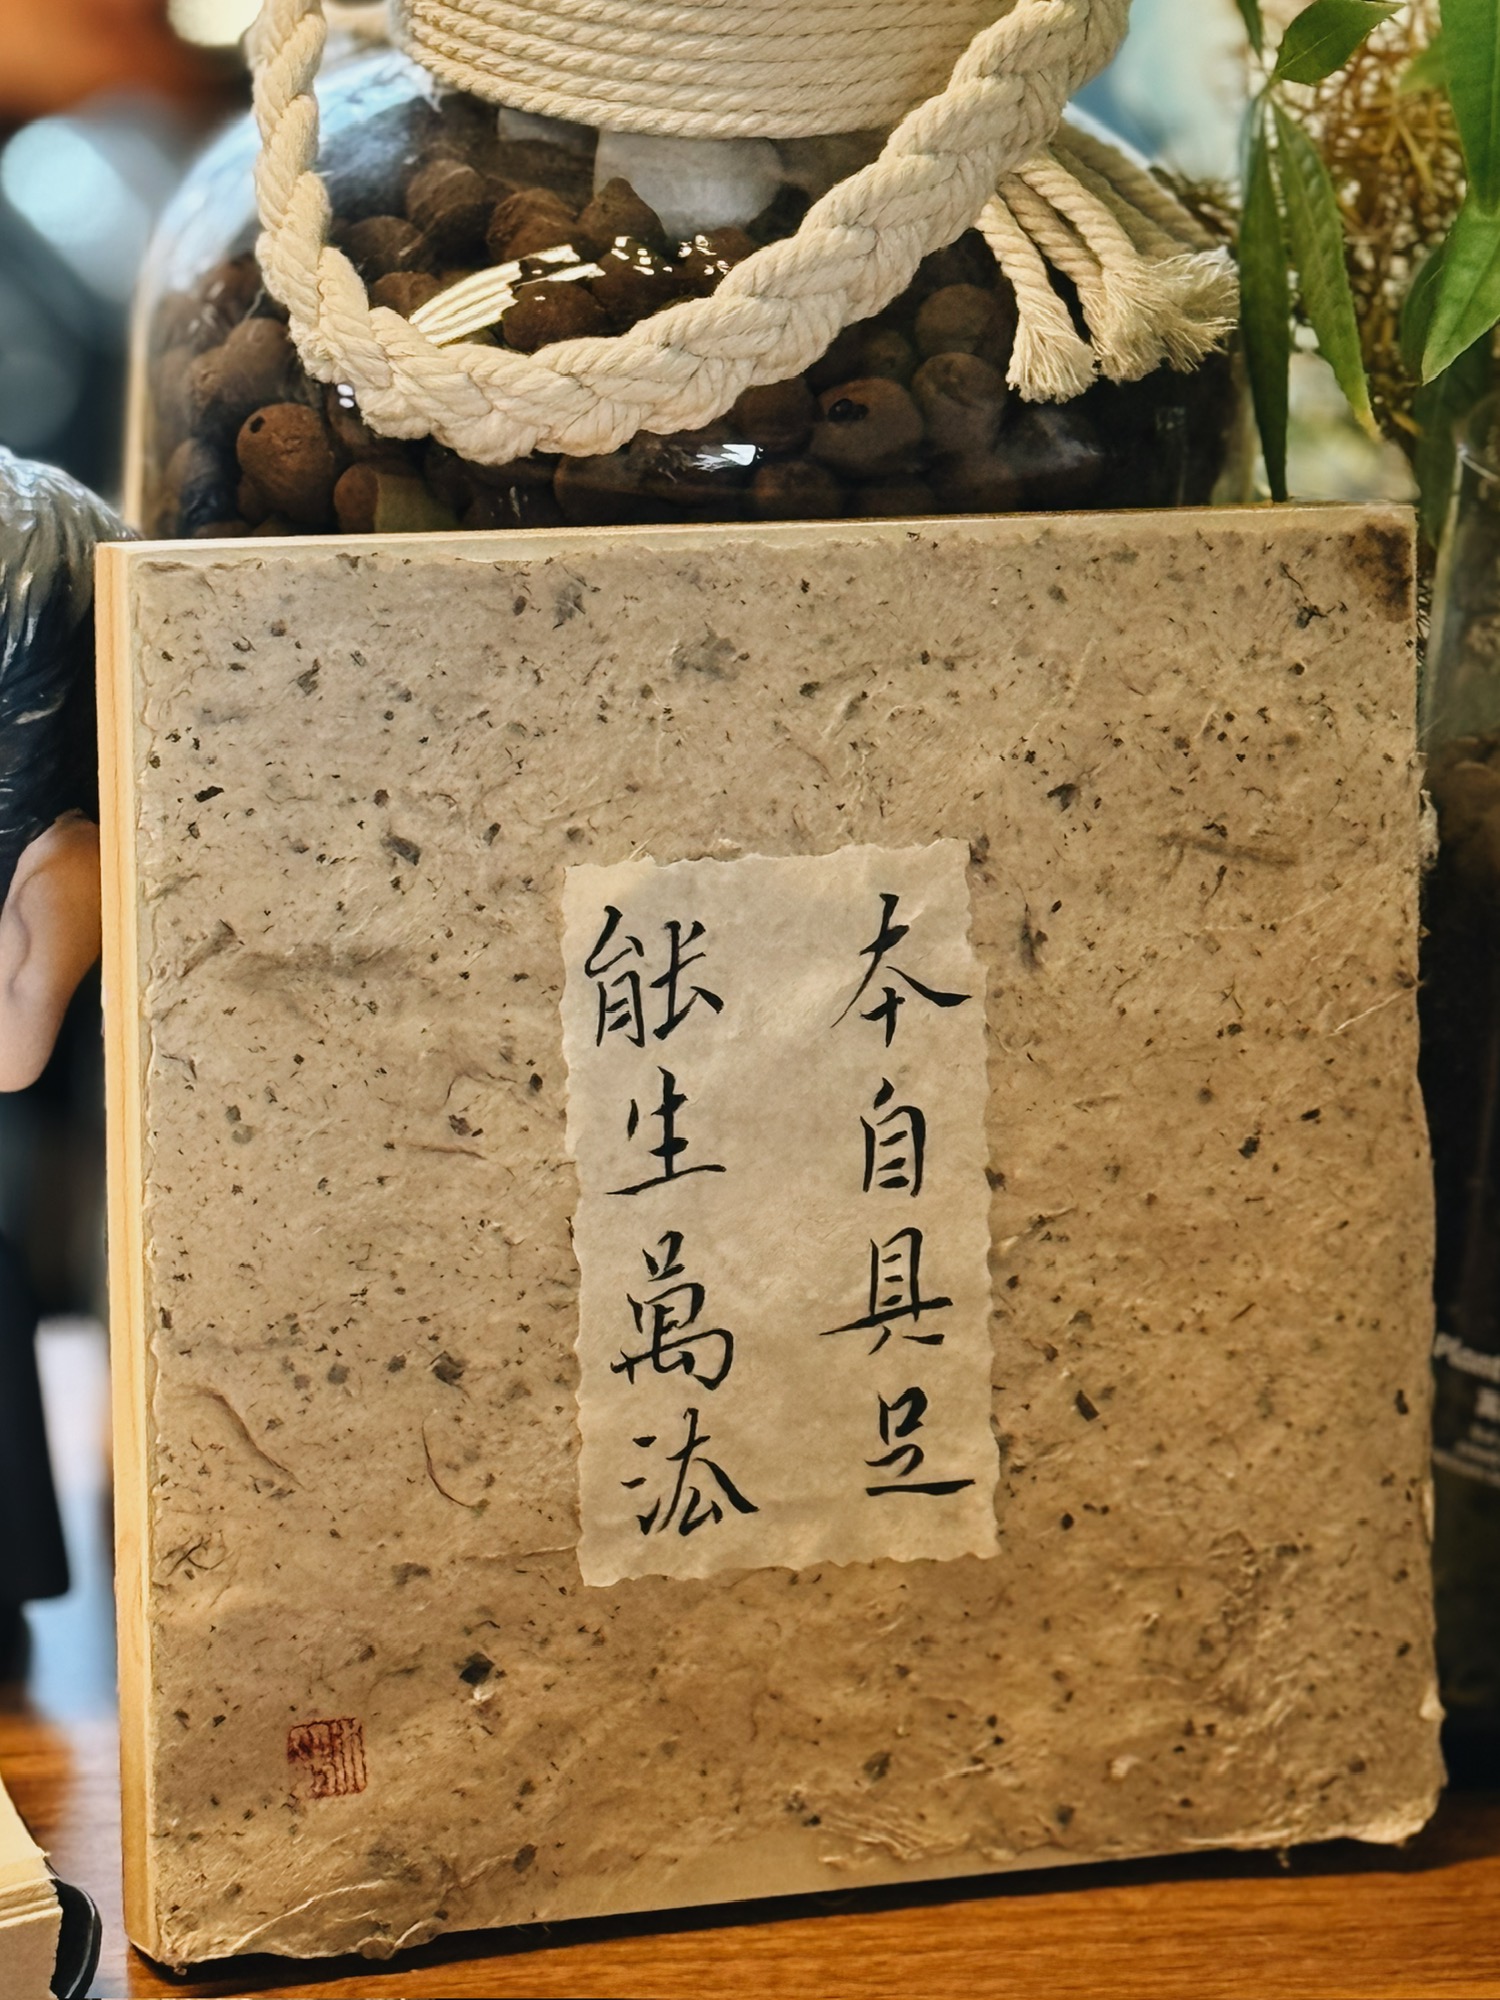 本自具足
能生萬法